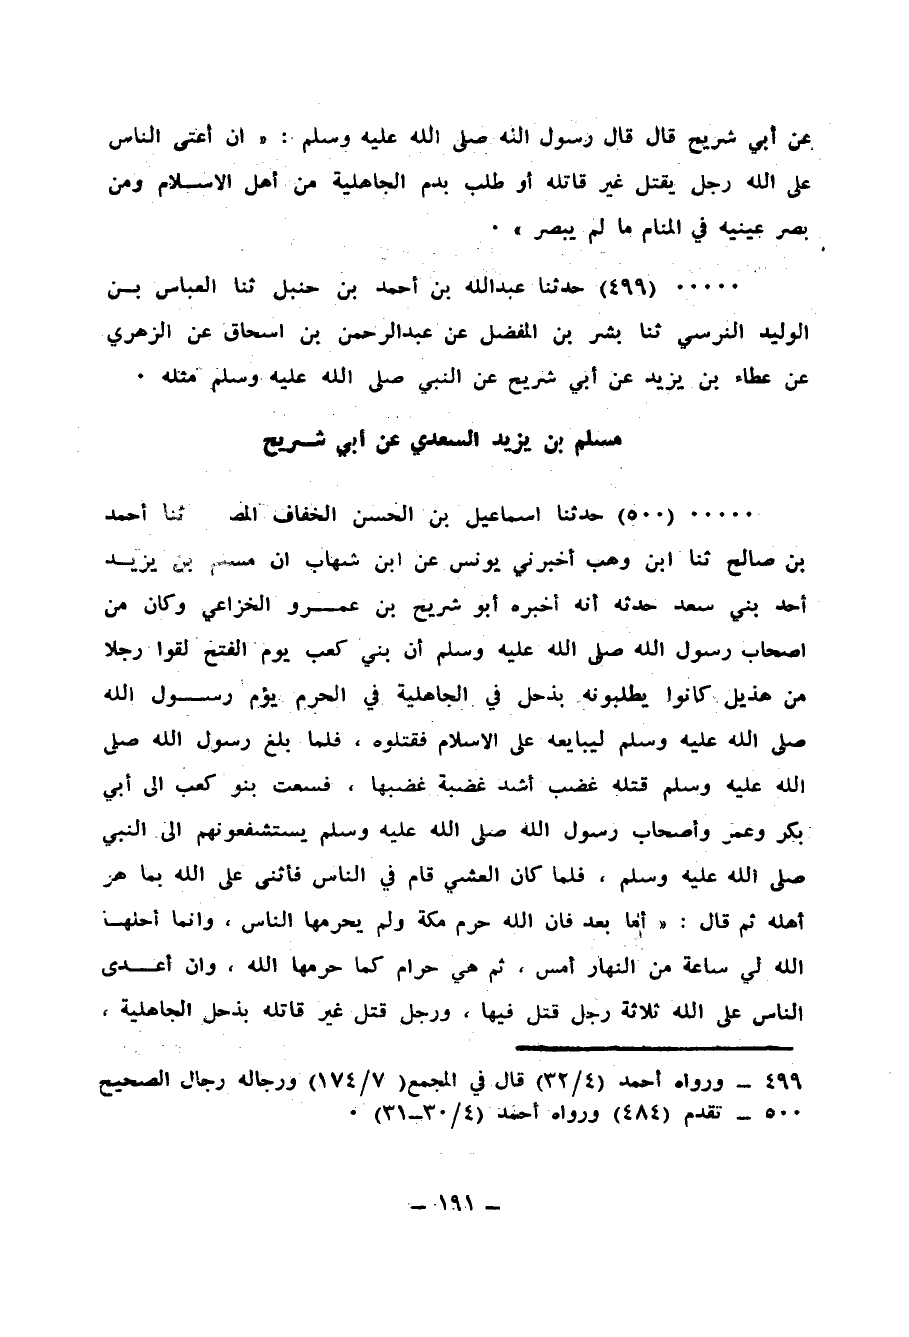 عن أبي شريح قال قال رسول الله صلى الله عليه وسلم : « ان أعتى الناس
على الله رجل يقتل غير قاتله أو طلب بدم الجاهلية من أهل الاسلام ومن
بصر عينيه في المنام ما لم يبصر » ٠
٠٠٠٠٠ (٤٩٩) حدثنا عبدالله بن أحمد بن حنبل ثنا العباس بن
الوليد النرسي ثنا بشر بن المفضل عن عبدالرحمن بن اسحاق عن الزهري
عن عطاء بن يزيد عن أبي شريح عن النبي صلى الله عليه وسلم مثله ٠
مسلم بن يزيد السعدي عن أبي شريح
٠٠٠٠٠ (٥٠٠) حدثنا اسماعيل بن الحسن الخفاف المص ثنا أحمد
بن صالح ثنا ابن وهب أخبرني يونس عن ابن شهاب ان مسلم بن يزيد
أحد بني سعد حدثه أنه أخبره أبو شريح بن عمرو الخزاعي وكان من
اصحاب رسول الله صلى الله عليه وسلم أن بني كعب يوم الفتح لقوا رجلا
من هذيل كانوا يطلبونه بذحل في الجاهلية في الحرم يؤم رسول الله
صلى الله عليه وسلم ليبايعه على الاسلام فقتلوه ، فلما بلغ رسول الله صلى
الله عليه وسلم قتله غضب أشد غضبة غضبها ، فسعت بنو كعب الى أبي
بكر وعمر وأصحاب رسول الله صلى الله عليه وسلم يستشفعونهم الى النبي
صلى الله عليه وسلم ، فلما كان العشي قام في الناس فأثنى على الله بما هر
أهله ثم قال : « أما بعد فان الله حرم مكة ولم يحرمها الناس ، وانما أحلها
الله لي ساعة من النهار أمس ، ثم هي حرام كما حرمها الله ، وان أعدى
الناس على الله ثلاثة رجل قتل فيها ، ورجل قتل غير قاتله بذحل الجاهلية ،
٤٩٩ ــ ورواه أحمد (٣٢/٤) قال في المجمع( ١٧٤/٧) ورجاله رجال الصحيح
٥٠٠ ــ تقدم (٤٨٤) ورواه أحمد (٣٠/٤ــ٣١) ٠
ــ ١٩١ ــ